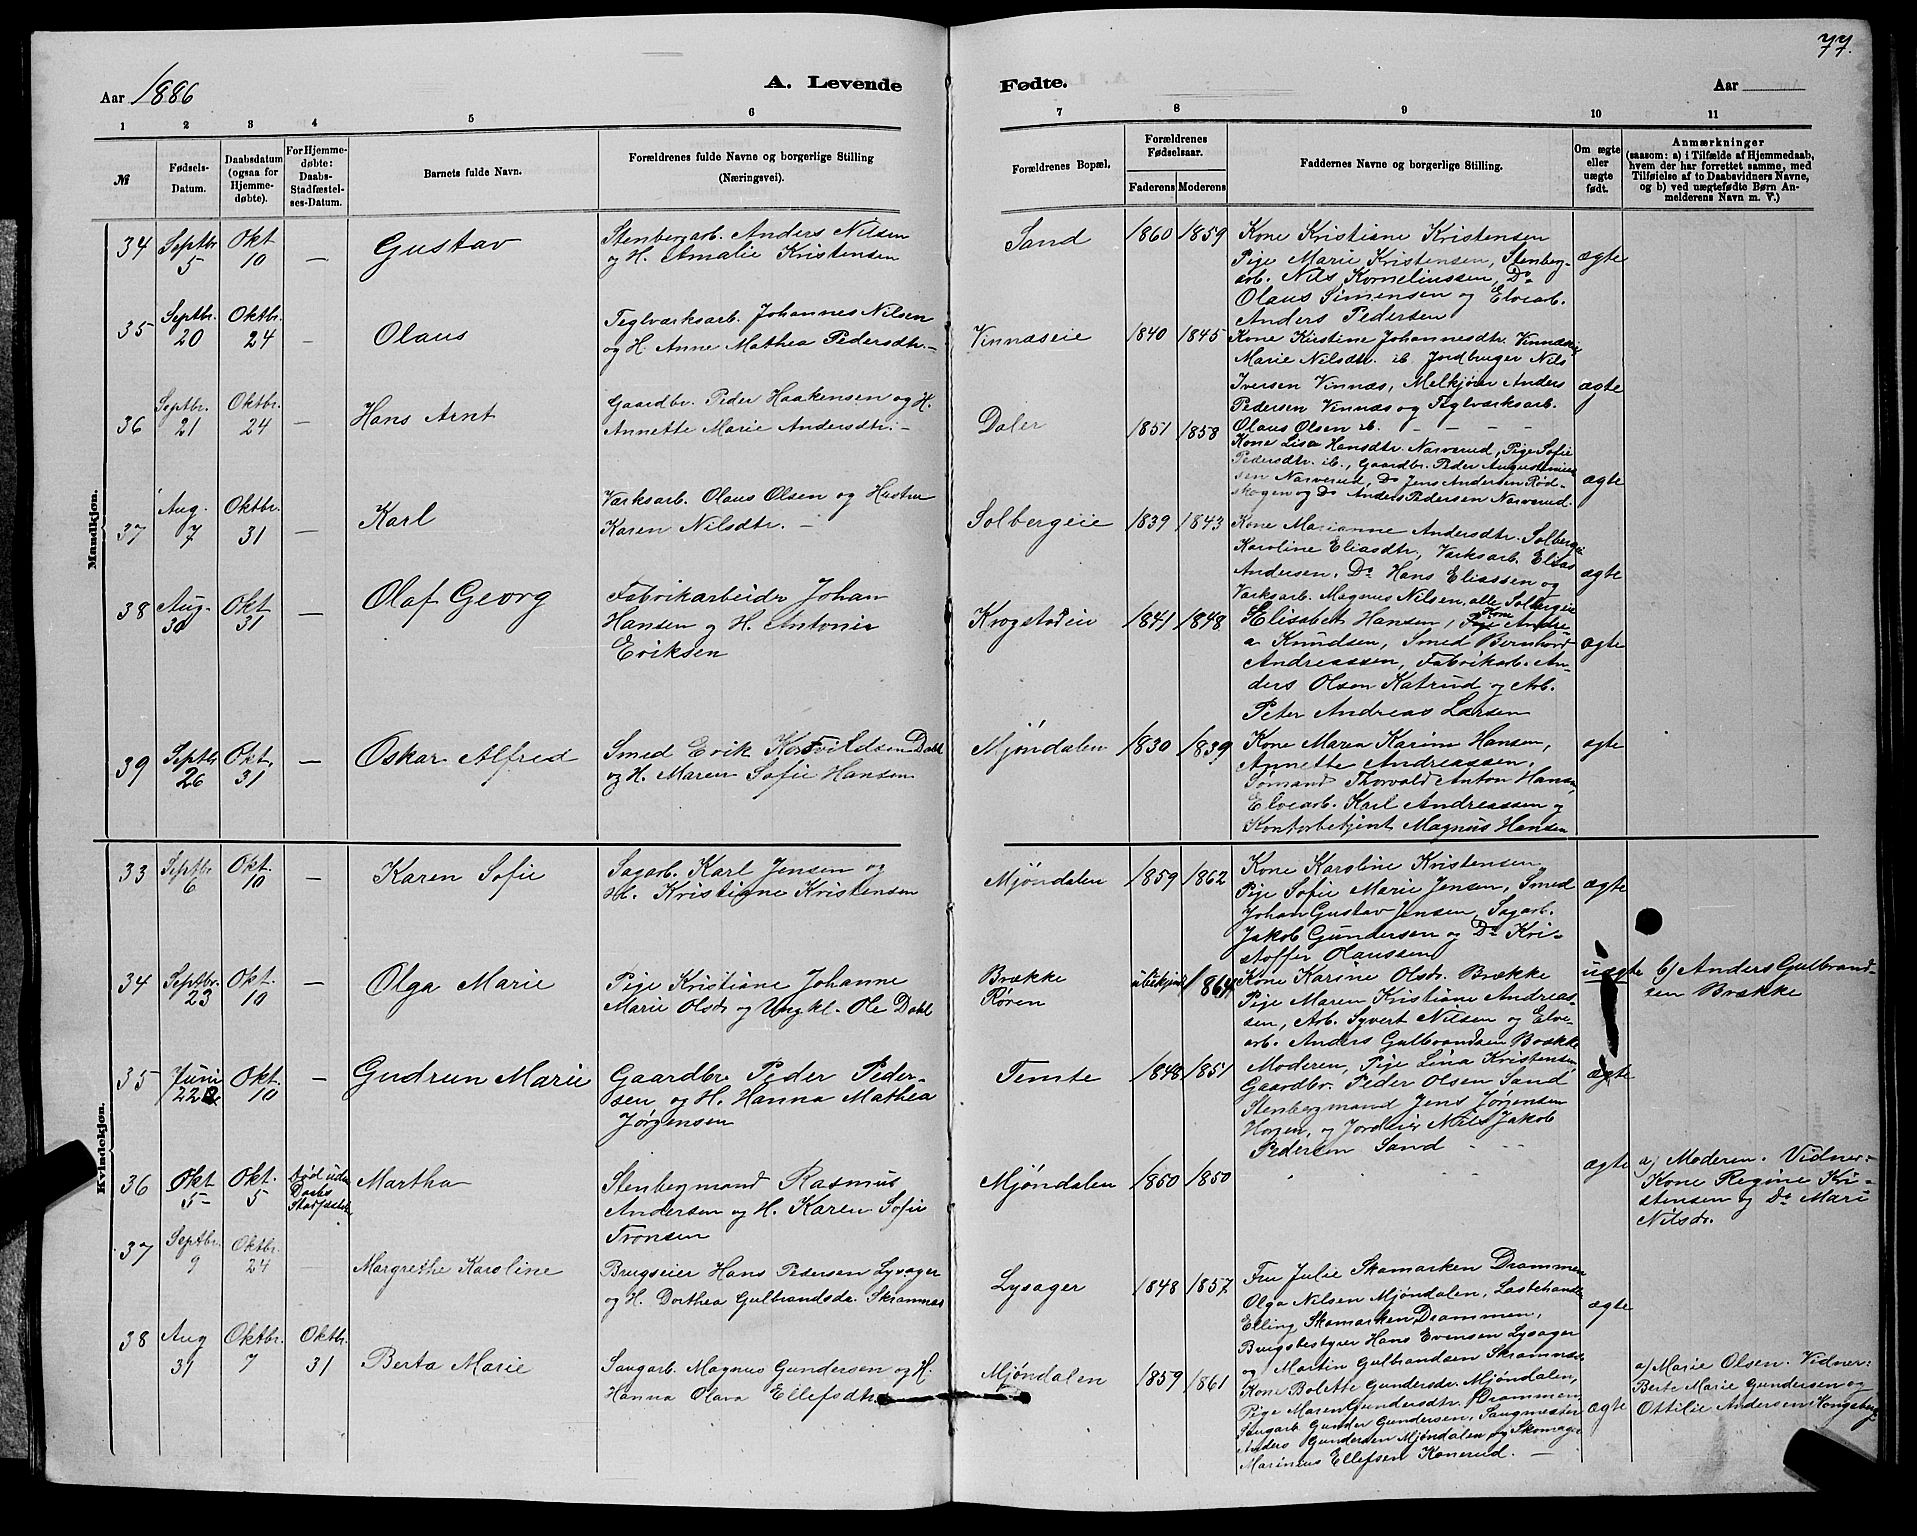 77.
Aar 1886
A. Levende
Fødte.
Aar
1 2 3 4 5 6 7 8 9 10 11
№
Fødsels-
Datum.
Daabsdatum
(ogsaa for
Hjemme-
døbte).
For Hjemme-
døbte:
Daabs-
Stadfæstel-
ses-Datum.
Barnets fulde Navn.
Forældrenes fulde Navne og borgerlige Stilling
(Næringsvei).
Forældrenes Bopæl.
Forældrenes
Fødselsaar.
Faderens Moderens
Faddernes Navne og borgerlige Stilling.
Om ægte
eller
uægte
født.
Anmærkninger
(saasom: a) i Tilfælde af Hjemmedaab,
hvem der har forrettet samme, med
Tilføielse af to Daabsvidners Navne,
og b) ved uægtefødte Børn An-
melderens Navn m. V.)
Mandkjøn.
34 Septbr. 5 Okt 10 — Gustav
Stenbergarb. Anders Nilsen
og H. Amalie Kristensen
Sand 1860 1859
Kone Kristiane Kristensen
Pige Marie Kristensen, Stenberg-
arb. Nils Korneliussen, Do
Olaus Simensen og Elvearb.
Anders Pedersen
ægte
35 Septbr. 20 Oktbr. 24 — Olaus
Teglværksarb. Johannes Nilsen
og H. Anne Mathea Pedersdtr. —
Vinnæseie 1840 1845
Kone Kirstine Johannesdtr. Vinnæseie
Marie Nilsdtr. ib. Jordbruger Nils
Iversen Vinnæs, Melkjører Anders
Pedersen Vinnæs og Teglværksarb.
Olaus Olsen ib. - - - -
ægte
36 Septbr. 21 Oktbr. 24 — Hans Arnt
Gaardbr. Peder Haakensen og H.
Annette Marie Andersdtr. —
Daler 1851 1858
Kone Lisa Hansdtr. Narverud, Pige Sofie
Pedersdtr. ib., Gaardbr. Peder Augustinius-
sen Narverud, Do Jens Andersen Rød-
skogen og Do Anders Pedersen Narverud.
ægte
37 Aug. 7 Oktbr. 31 — Karl
Værksarb. Olaus Olsen og Hustru
Karen Nilsdtr. —
Solbergeie 1839 1843
Kone Marianne Andersdtr. Solbergeie
Karoline Eliasdtr, Værksarb. Elias
Andersen, Do Hans Eliassen og
Værksarb. Magnus Nilsen, alle Solbergeie
ægte
38 Aug. 30 Okt 31 — Olaf Georg
Fabrikarbeider Johan
Hansen og H. Antonie
Eriksen
Krogstadeie 1841 1848
Elisabet Hansen, Kone Andre
a Knudsen, Smed Bernhard
Andreassen, Fabrikarb. An-
ders Olsen Katrud og Arb.
Peter Andreas Larsen
ægte
39 Septbr 26 Okt. 31 — Oskar Alfred
Smed Erik Dahl
og H. Maren Sofie Hansen
Mjøndalen 1830 1839
Kone Maren Karine Hansen,
Annette Andreassen,
Sømand Thorvald Anton Hansen,
Elvearb. Karl Andreassen og
Kontorbetjent Magnus Hansen
ægte
Kvindekjøn.
33 Septbr. 6 Okt. 10 — Karen Sofie
Sagarb. Karl Jensen og
H. Kristiane Kristensen
Mjøndalen 1859 1862
Kone Karoline Kristensen,
Pige Sofie Marie Jensen, Smed
Johan Gustav Jensen, Sagarb.
Jakob Gundersen og Do Kri-
stoffer Olaussen
ægte
34 Septbr. 23 Okt. 10 — Olga Marie
Pige Kristiane Johanne
Marie Olsdr og Ungkl. Ole Dahl
Brække
Røren
ubekjendt 1864
Kone Karine Olsdr. Brække
Pige Maren Kristiane Andreas-
sen, Arb. Syvert Nilsen og Elve-
arb. Anders Gulbrandsen Brække
uægte
b) Anders Gulbrand-
sen Brække
35 Juni 22 Okt. 10 — Gudrun Marie
Gaardbr. Peder Peder-
sen og H. Hanna Mathea
Jørgensen
Temte 1848 1851
Moderen, Pige Lina Kristensen,
Gaardbr. Peder Olsen Sand
Stenbergmand Jens Jørgensen
Horgen, og Jordeier Nils Jakob
Pedersen Sand
ægte
36 Okt 5 Okt. 5 død uden
Daabs
Stadfæstelse
Martha
Stenbergmand Rasmus
Andersen og H. Karen Sofie
Tronsen
Mjøndalen 1850 1850
ægte
a) Moderen. Vidner-
Kone Regine Kri-
stensen og Do Mari
Nilsdr.
37 Septbr. 9 Oktbr. 24
Margrethe Karoline
Brugseier Hans Pedersen Lysager
og H. Dorthea Gulbrandsdr. Skramnæs
Lysager 1848 1857
Fru Julie Skamarken Drammen
Olga Nilsen Mjøndalen, Lastehandler
Elling Skamarken Drammen,
Brugsbestyrer Hans Evensen Lysager
og Martin Gulbrandsen Skramnæs
ægte
38 Aug 31 Oktbr. 7 Oktbr. 31
Berta Marie
Saugarb. Magnus Gundersen og H.
Hanna Olava Ellefsdtr
Mjøndalen 1859 1861
Kone Bolette Gundersdr. Mjøndalen,
Pige Maren Gundersdtr. Drammen,
Saugarb Gunder Gundersen, Saugmester
Anders Gundersen Mjøndalen og Skomager
Marinius Ellefsen Konerud. —
ægte
a) Marie Olsen. Vidner:
Berte Marie Gundersen og
Ottilie Andersen Kongsberg